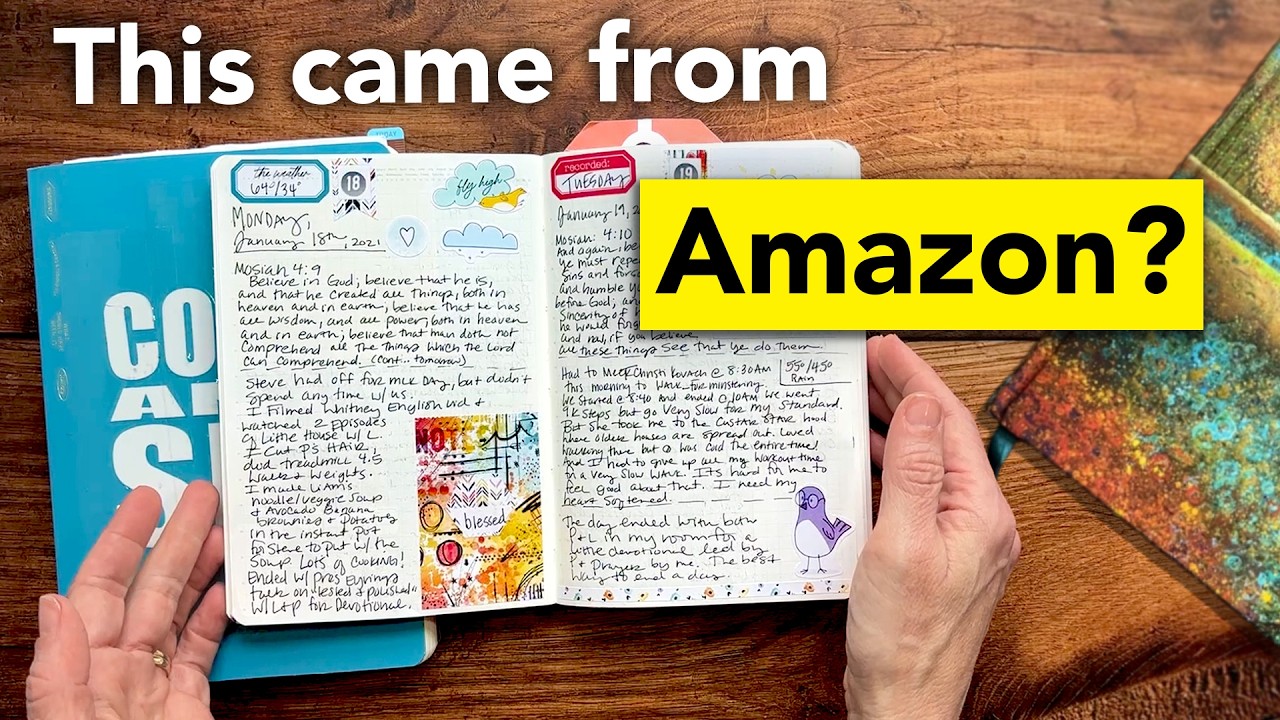 This came from
Amazon?
CO
A
S
the weather
64°/34°
18
fly high
MONDAY,
January 18th, 2021
Mosiah 4:9
Believe in God; believe that he is,
and that he created all things, both in
heaven and in earth; believe that he has
all wisdom, and all power, both in heaven
and in earth; believe that man doth not
comprehend all the things which the Lord
can comprehend. (cont... tomorrow)
Steve had off for MLK DAY, but didn't
spend any time w/ us.
I Filmed Whitney English vid +
watched 2 Episodes
of Little House w/ L.
I Cut P's HAIR,
did treadmill 4.5
walk + weights.
I made
noodle/veggie soup
+ Avocado Banana
brownies + Potatoes
in the instant pot
for Steve to put w/ the
Soup. Lots of COOKING!
Ended w/ Pres Eyring's
talk on "Tested
w/ L+P for Devotional.
NOTE
blessed
recorded:
TUESDAY
19
January 19, 2
Mosiah 4:10
And again, be
ye must repe
sins and fors
and humble y
before God; an
sincerity of h
he would forg
and now, if you believe
all these things see that ye do them
55°/45°
RAIN
Had to meet Christi @ 8:30AM
this morning to WALK for ministering.
We started @ 8:40 and ended @ 10AM. We went
9k steps but go very slow for my standard.
But she took me to the hood
where older houses are spread out. Loved
walking there but was cold the entire time!
And I had to give up all my workout time
for a very slow walk. It's hard for me to
feel good about that. I need my
heart softened.
The day ended with both
P+L in my room for a
little devotional led by
L + Prayers by me. The best
way to end a day.